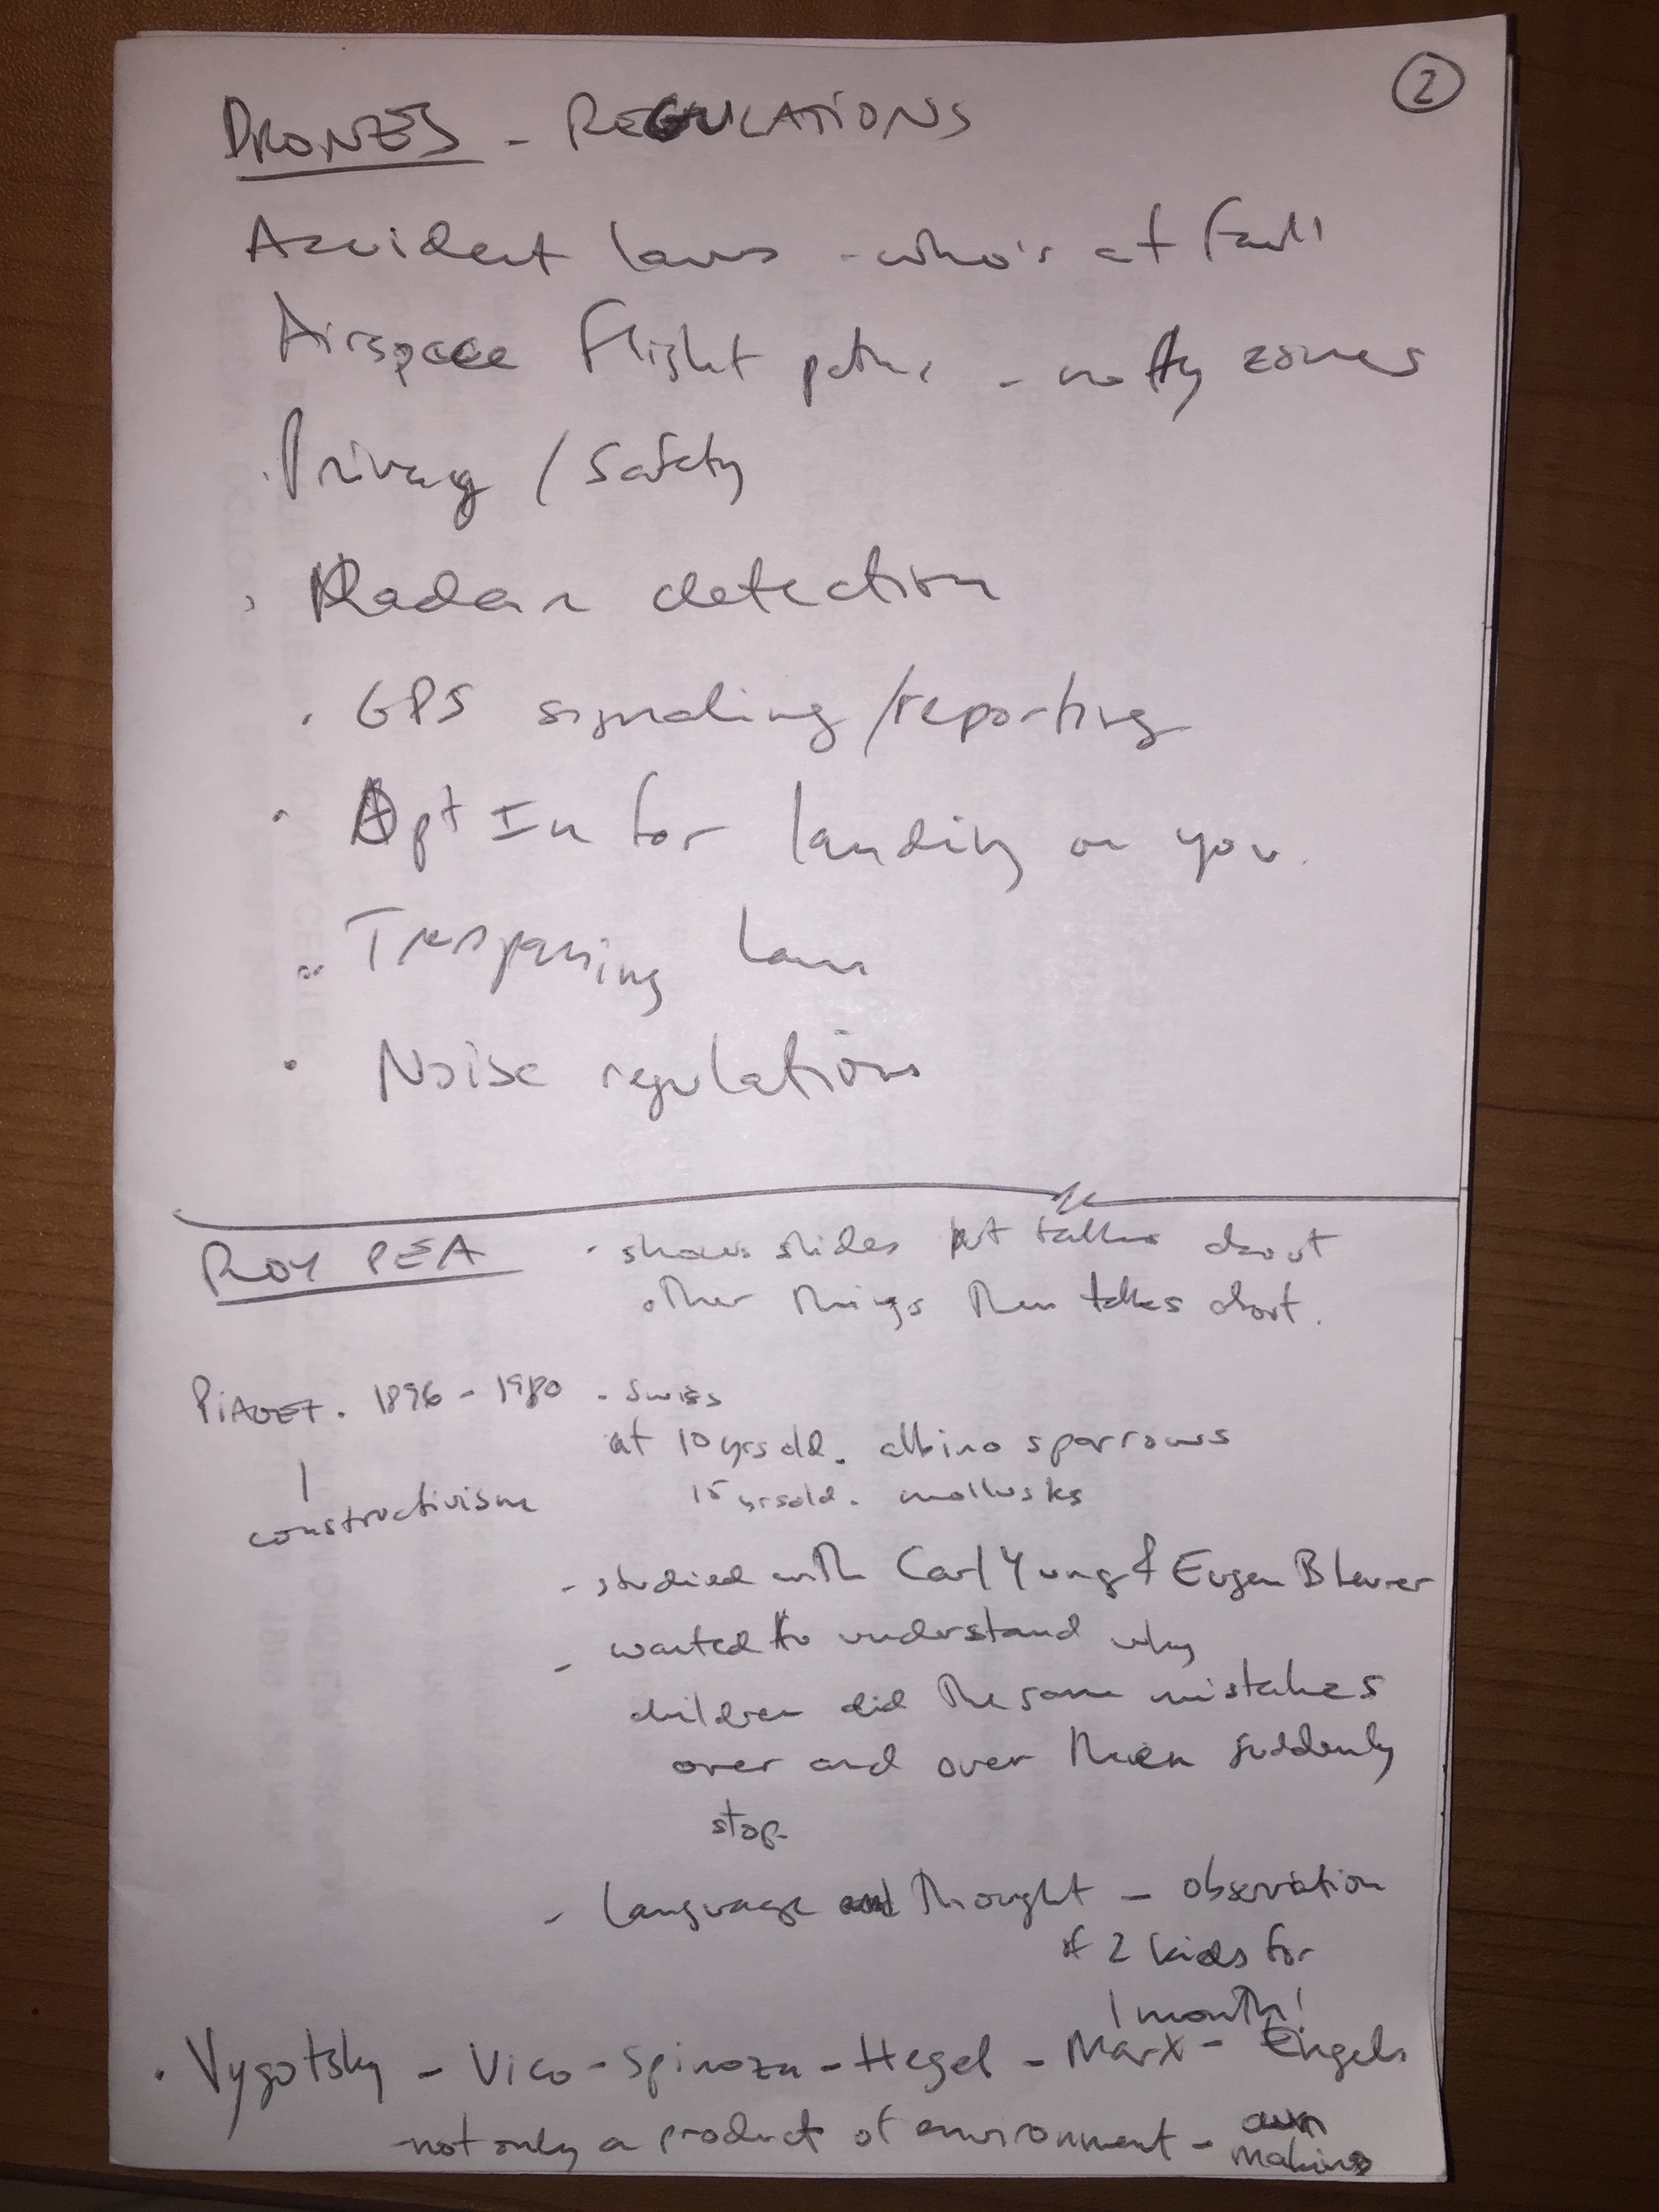 2
DRONES - REGULATIONS
Accident laws - who's at fault
Airspace flight paths - no fly zones
Privacy / Safety
Radar detection
GPS signaling/reporting
Opt In for landing on you.
Trespassing laws
Noise regulations
ROY PEA - shows slides but talks about
other things then talks about.
PIAGET. 1896 - 1980 - Swiss
at 10 yrs old. albino sparrows
15 yrs old. mollusks
constructivism
- studied with Carl Yung & Eugen Bleuer
- wanted to understand why
children did the same mistakes
over and over then suddenly
stop
- Language and Thought - observation
of 2 kids for
1 month!
• Vygotsky - Vico - Spinoza - Hegel - Marx - Engels
- not only a product of environment - own
making